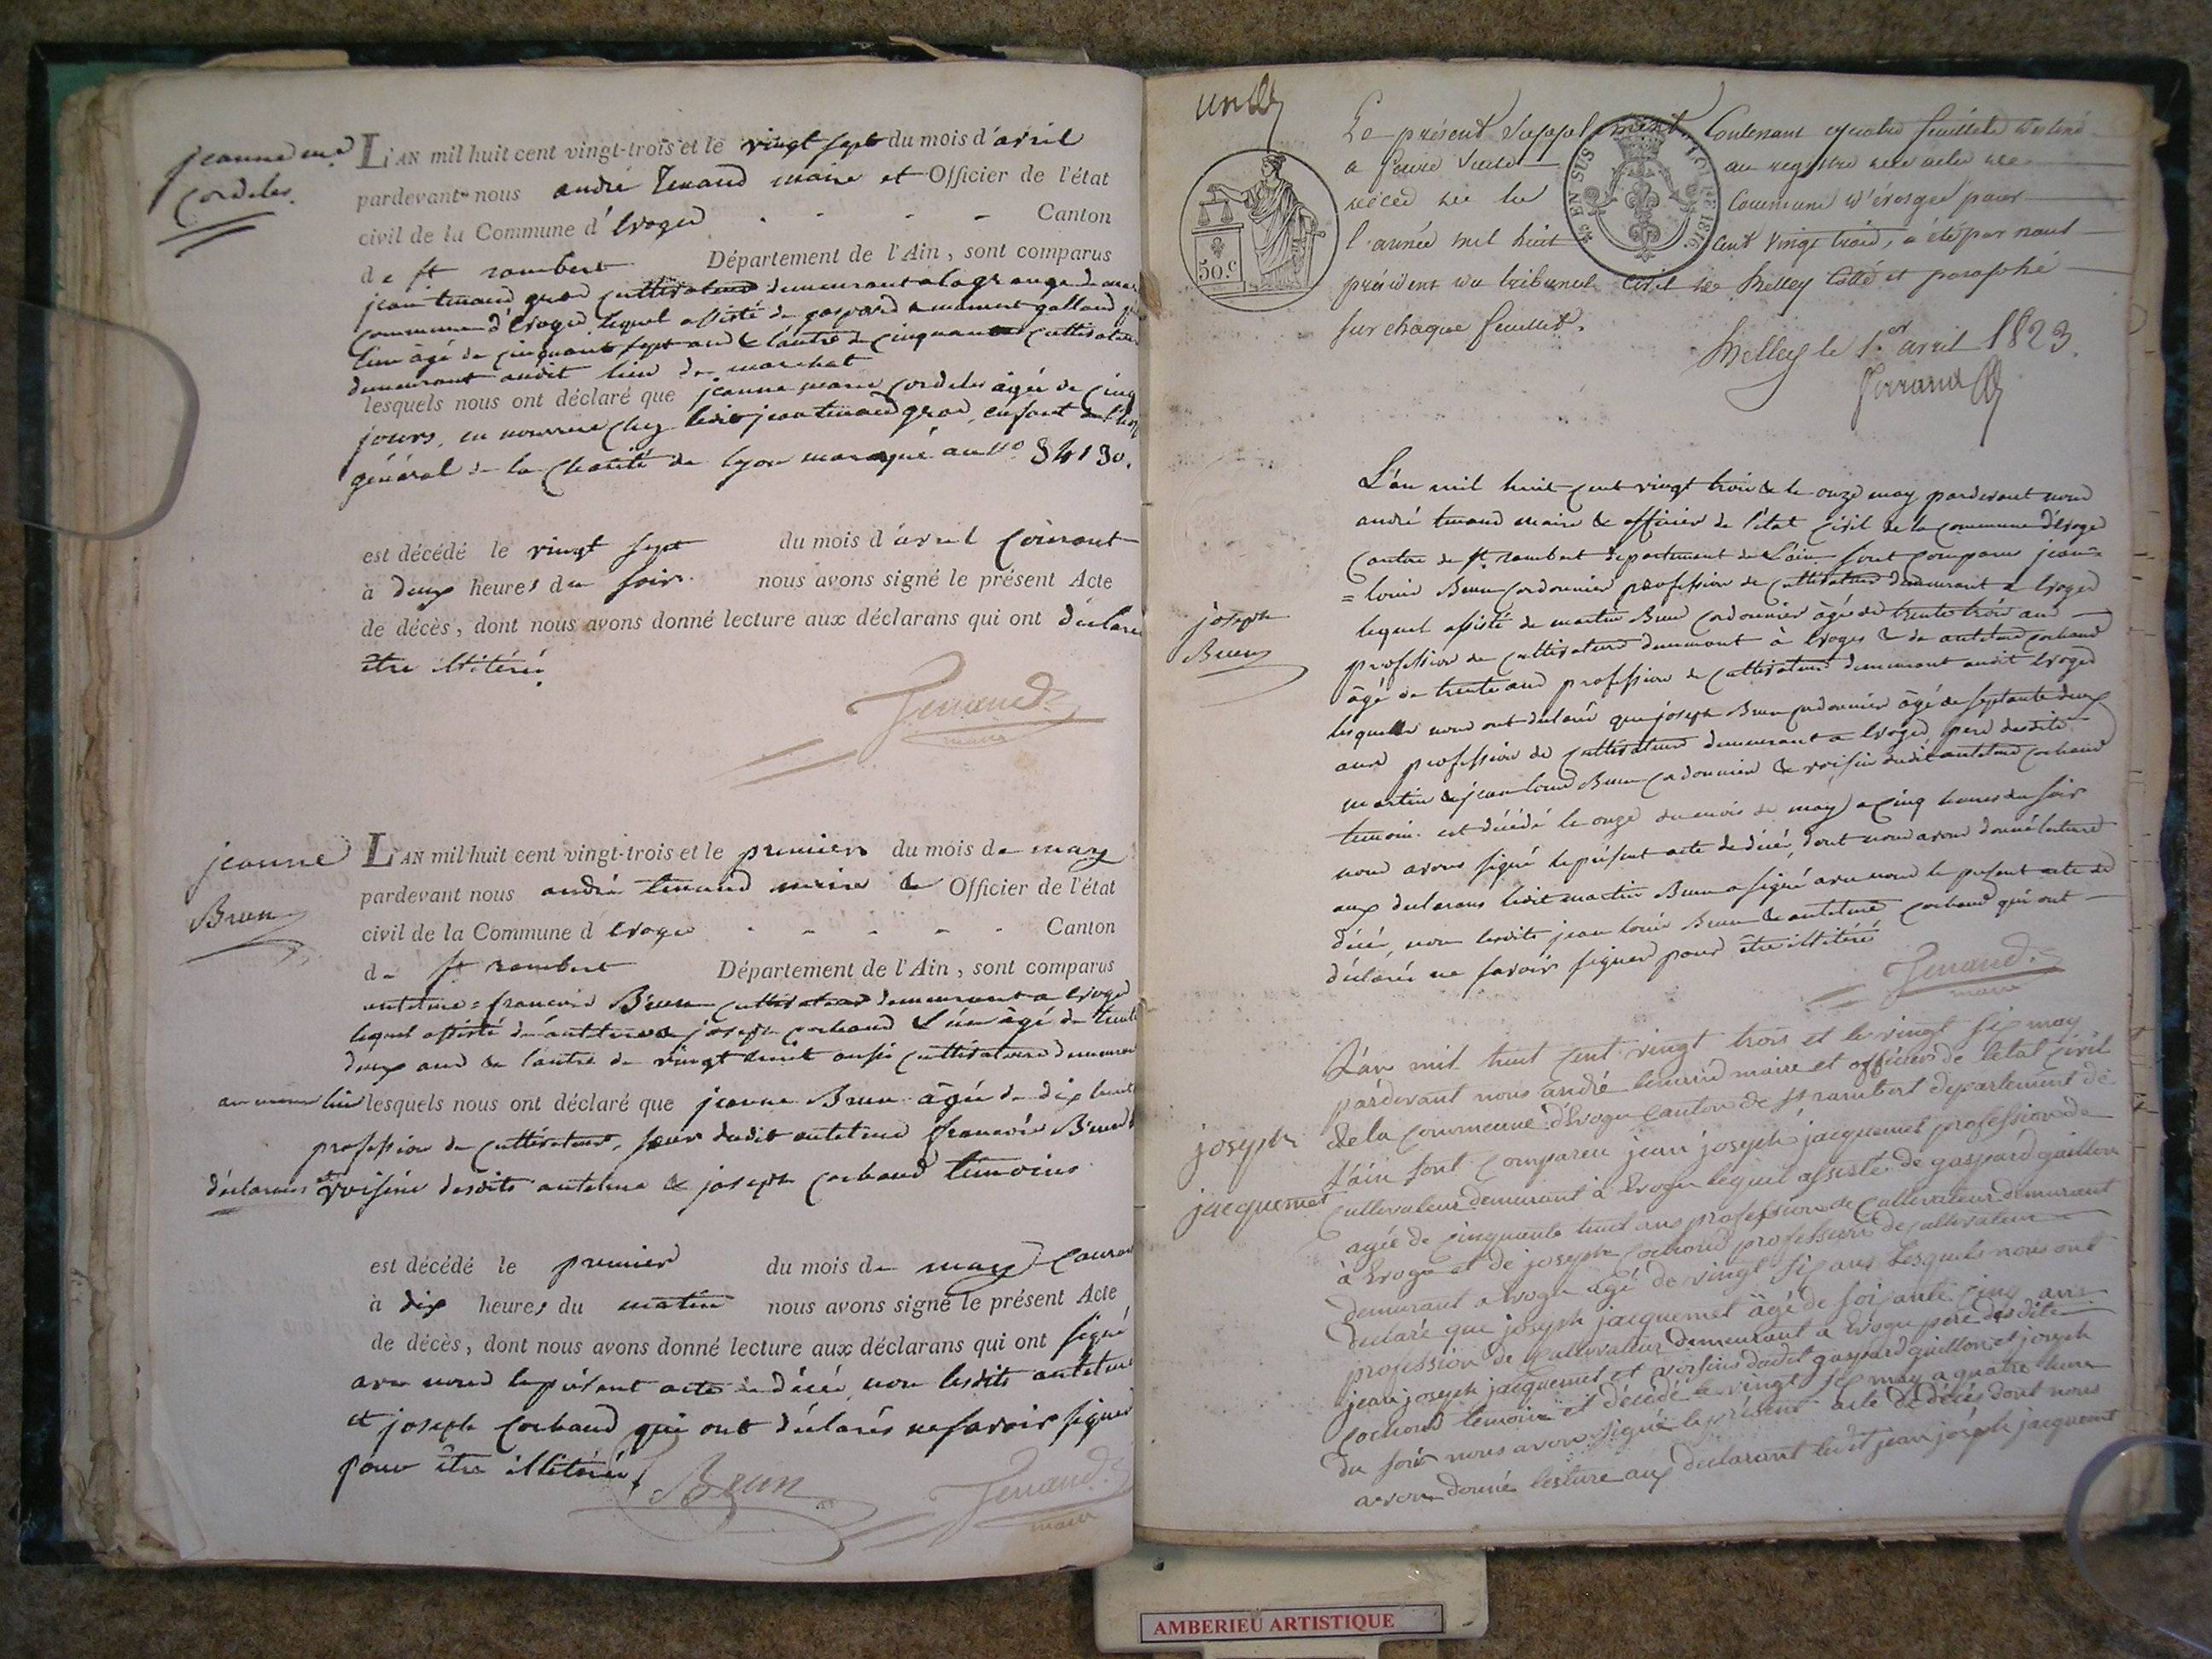 jeanne m.e
Cordeles.
L'AN mil huit cent vingt-trois et le vingt sept du mois d'avril
pardevant nous andré Tenand maire et Officier de l'état
civil de la Commune d'Evoges Canton
de st rambert Département de l'Ain, sont comparus
jean tenand gros cultivateur demeurant a la grange de
commune d'Evoges lequel assisté de gaspard &
l'un âgé de cinquante sept ans & l'autre de cinquante cultivateurs
demeurant audit lieu de
lesquels nous ont déclaré que jeanne marie Cordeles âgée de cinq
jours, en nourrice chez ledit jean tenand gros, enfant de l'hop
général de la Charité de lyon marqué au N.o
est décédé le vingt sept du mois d'avril Courant
à deux heures du soir. nous avons signé le présent Acte
de décès, dont nous avons donné lecture aux déclarans qui ont déclaré
être illitérés.
Tenand
maire
jeanne
Brun
L'AN mil huit cent vingt-trois et le premier du mois de may
pardevant nous andré tenand maire & Officier de l'état
civil de la Commune d Evoges Canton
de st rambert Département de l'Ain, sont comparus
antelme=francois Brun cultivateur demeurant a Evoges
lequel assisté d'antelme & joseph cochaud l'un âgé de trente
deux ans & l'autre de vingt huit aussi cultivateurs demeurant
au même lieu lesquels nous ont déclaré que jeanne Brun âgée de dix huit
profession de cultivateur, sœur dudit antelme francois Brun
déclarans et voisine desdits antelme & joseph cochaud témoins
est décédé le premier du mois de may Courant
à dix heures du matin nous avons signé le présent Acte
de décès, dont nous avons donné lecture aux déclarans qui ont signé
avec nous le présent acte de décés, non lesdits antelme
et joseph Cochaud qui ont déclarés ne savoir signer
pour être illitérés
Brun
Tenand
maire
Le présent Supplément, Contenant quatre feuillets destiné
a faire suite au registre des actes de
décès de la Commune d'évoges pour
l'année mil huit cent vingt trois, a été par nous
président du tribunal civil de Belley Cotté et paraphé
sur chaque feuillet.
Belley le 1.er avril 1823.
EN SUS
1816
50.c
joseph
Brun
L'an mil huit cent vingt trois & le onze may pardevant nous
andré tenand maire & officier de l'état civil de la commune d'Evoges
canton de st rambert departement de L'ain sont comparus jean=
=louis Brun cordonnier profession de cultivateur demeurant a Evoges
lequel assisté de martin Brun cordonnier âgé de trente trois ans
profession de cultivateur demeurant à Evoges & de antelme cochaud
âgé de trente ans profession de cultivateur demeurant audit Evoges
lesquels nous ont déclaré que joseph Brun cordonnier âgé de septante deux
ans profession de cultivateur demeurant a Evoges, pere desdits
martin & jean louis Brun cordonnier & voisin dudit antelme cochaud
temoin est décédé le onze du mois de may a cinq heures du soir
nous avons signé le présent acte de décés, dont nous avons donné lecture
aux declarans ledit martin Brun a signé avec nous le present acte de
décés, non lesdits jean louis Brun & antelme cochaud qui ont
déclarés ne savoir signer pour être illitérés
Tenand.
maire
joseph
jacquemet
L'an mil huit cent vingt trois et le vingt six may
pardevant nous andré tenand maire et officier de l'etat civil
de la commune d'Evoges canton de st rambert departement de
L'ain sont comparu jean joseph jacquemet profession de
cultivateur demurant à Evoges lequel assisté de gaspard guillon
agée de cinquante huit ans profession de cultivateur demurant
à Evoges et de joseph cochoud profession de cultivateur
demurant a Evoges âgé de vingt six ans lesquels nous ont
declaré que joseph jacquemet âgé de soixante cinq ans
profession de cultivateur demeurant a Evoges pere desdits
jean joseph jacquemet et voisins dudit gaspard guillon et joseph
cochoud temoin et décédé le vingt six may a quatre heure
du soir nous avons signé le présent acte de décés dont nous
avons donné lecture aux declarant ledit jean joseph jacquemet
AMBERIEU ARTISTIQUE